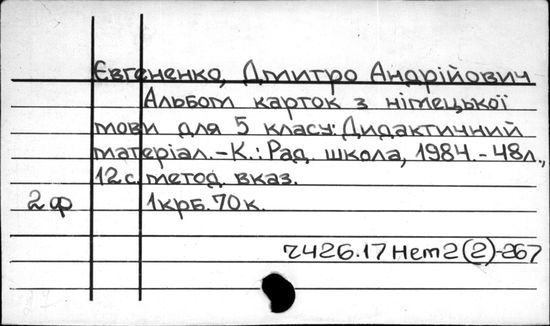 Євгененко, Дмитро Андрійович
Альбом карток з німецької
мови для 5 класу: Дидактичний
матеріал.-К.: Рад. школа, 1984.-48л.,
12с. метод. вказ.
2ф 1крб. 70к.
ч426.17Нем2(2)-267